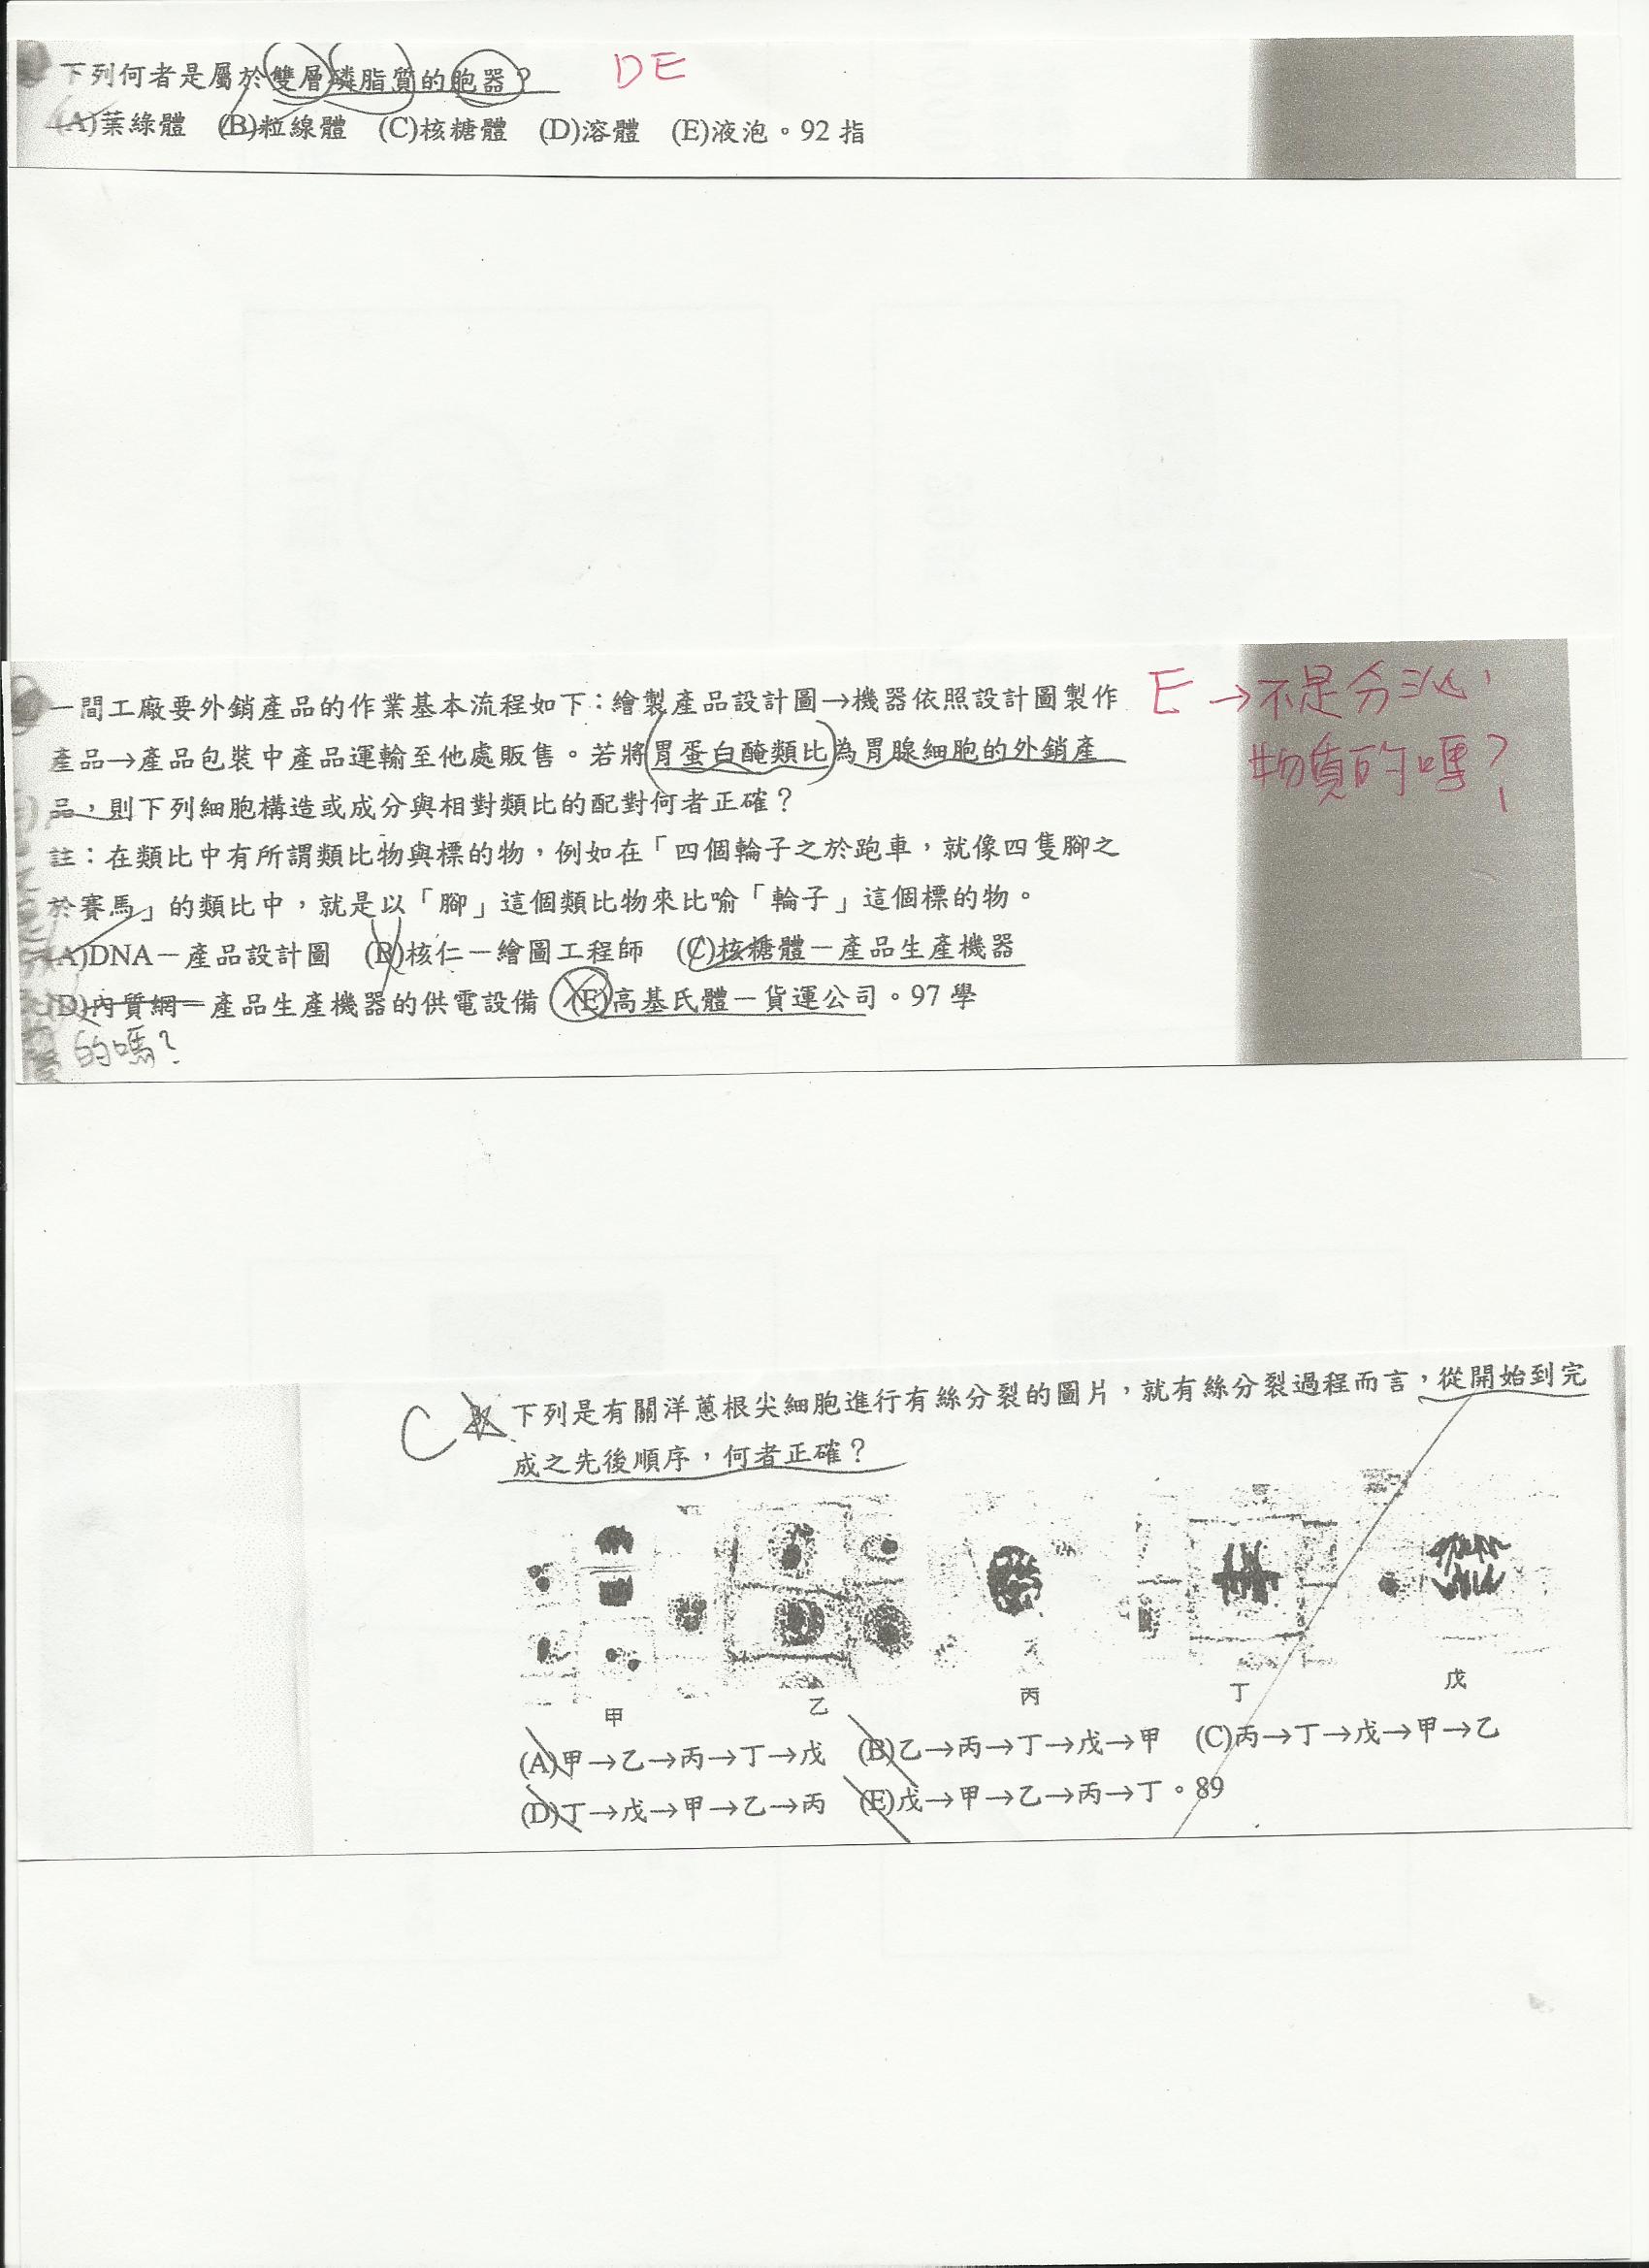 下列何者是屬於雙層磷脂質的胞器？ DE
(A)葉綠體 (B)粒線體 (C)核糖體 (D)溶體 (E)液泡。92 指
一間工廠要外銷產品的作業基本流程如下：繪製產品設計圖→機器依照設計圖製作
產品→產品包裝中產品運輸至他處販售。若將胃蛋白醃類比為胃腺細胞的外銷產
品，則下列細胞構造或成分與相對類比的配對何者正確？
註：在類比中有所謂類比物與標的物，例如在「四個輪子之於跑車，就像四隻腳之
於賽馬」的類比中，就是以「腳」這個類比物來比喻「輪子」這個標的物。
(A)DNA－產品設計圖 (B)核仁－繪圖工程師 (C)核糖體－產品生產機器
(D)內質網－產品生產機器的供電設備 (E)高基氏體－貨運公司。97 學
的嗎？
E→不是分泌
物質的嗎？
C 下列是有關洋蔥根尖細胞進行有絲分裂的圖片，就有絲分裂過程而言，從開始到完
成之先後順序，何者正確？
甲 乙 丙 丁 戊
(A)甲→乙→丙→丁→戊 (B)乙→丙→丁→戊→甲 (C)丙→丁→戊→甲→乙
(D)丁→戊→甲→乙→丙 (E)戊→甲→乙→丙→丁。89